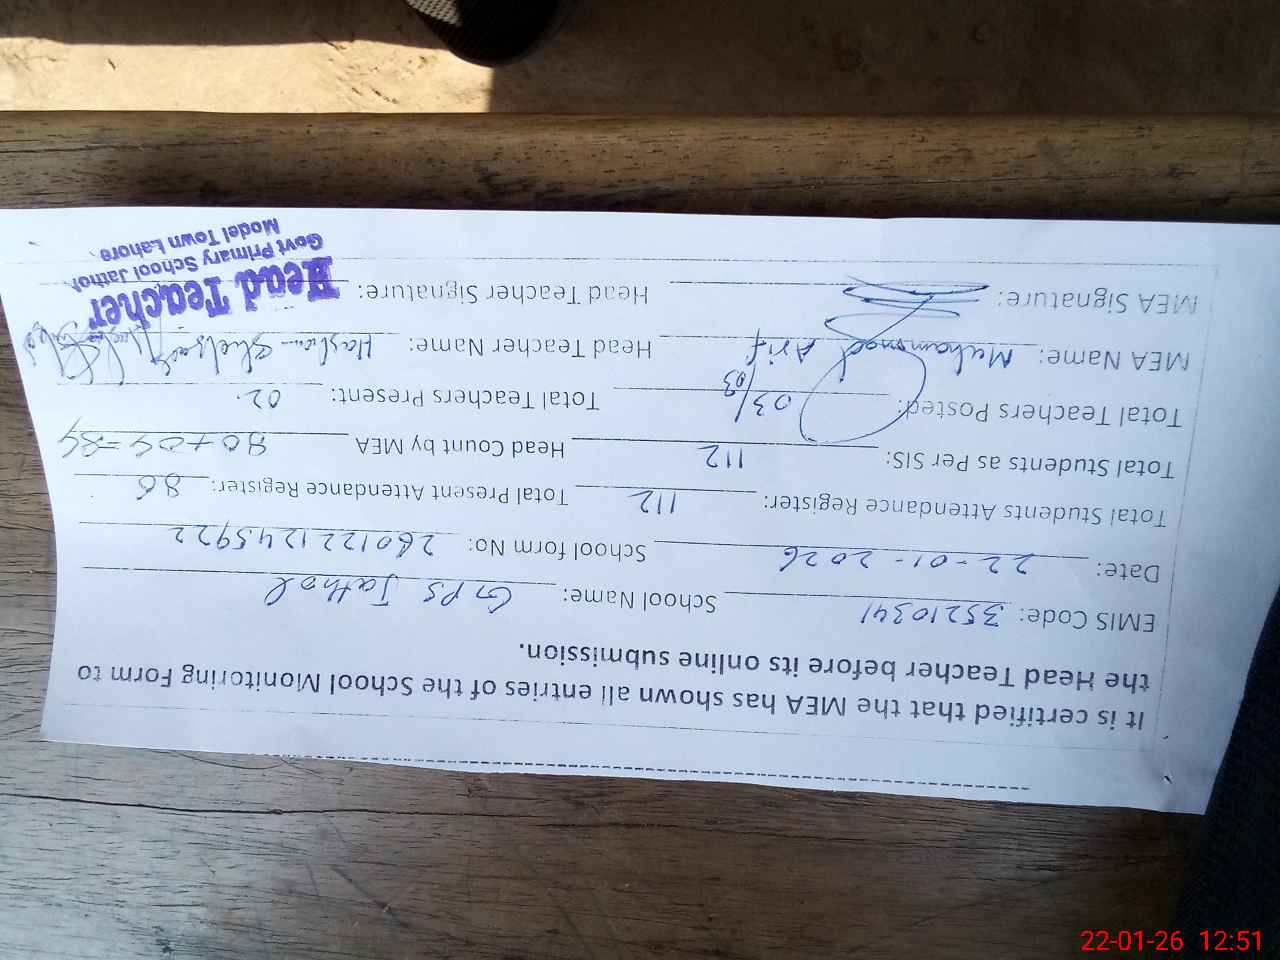 It is certified that the MEA has shown all entries of the School Monitoring Form to
the Head Teacher before its online submission.
EMIS Code: 35210341 School Name: GPS Jathol
Date: 22-01-2026 School form No: 260122124592 2
Total Students Attendance Register: 112 Total Present Attendance Register: 80
Total Students as Per SIS: 112 Head Count by MEA 80+04=84
Total Teachers Posted: 03/03 Total Teachers Present: 02.
MEA Name: Muhammad Arif Head Teacher Name: Hashim
MEA Signature: Head Teacher Signature:
Head Teacher
Govt Primary School Jathol
Model Town Lahore.
22-01-26 12:51